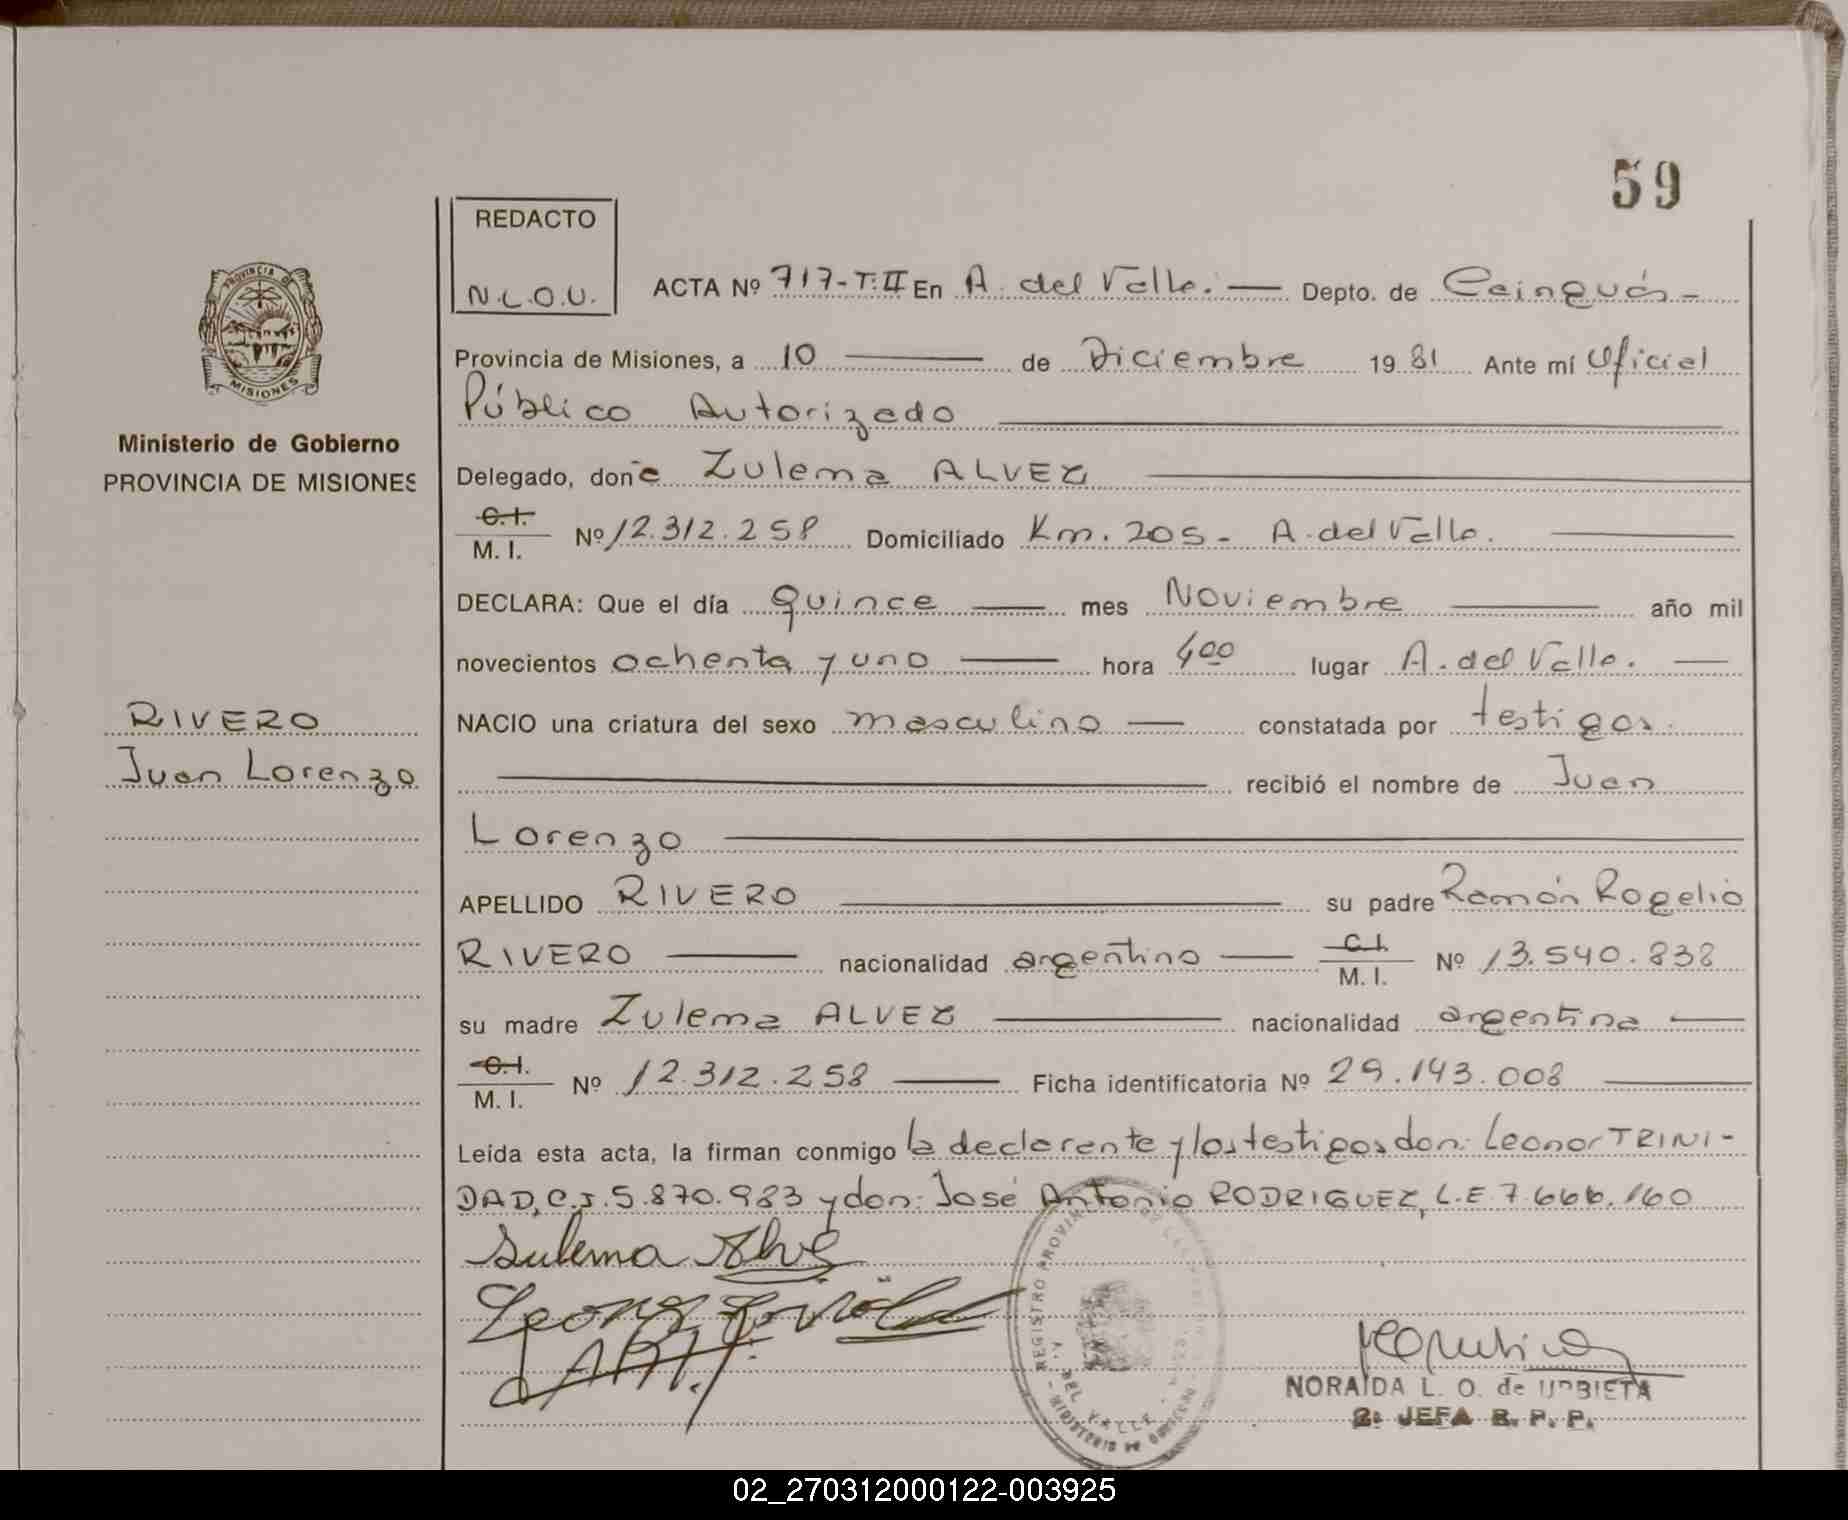 59
REDACTO
N.L.O.U.
ACTA Nº 717-T:II En A. del Valle. — Depto. de Cainguás -
Provincia de Misiones, a 10 — de Diciembre 1981 Ante mí Oficial
Público Autorizado
PROVINCIA DE
MISIONES
Ministerio de Gobierno
PROVINCIA DE MISIONES
Delegado, doña Zulema ALVEZ
C.I.
M. I. Nº 12.312.258 Domiciliado Km. 205 - A. del Valle.
DECLARA: Que el día quince — mes Noviembre — año mil
novecientos ochenta y uno — hora 4:00 lugar A. del Valle. —
RIVERO
Juan Lorenzo
NACIO una criatura del sexo masculino — constatada por testigos.
recibió el nombre de Juan
Lorenzo
APELLIDO RIVERO — su padre Ramón Rogelio
RIVERO — nacionalidad argentino — C.I. M. I. Nº 13.540.838
su madre Zulema ALVEZ — nacionalidad argentina —
C.I.
M. I. Nº 12.312.258 — Ficha identificatoria Nº 29.143.008
Leída esta acta, la firman conmigo la declarante y los testigos don: Leonor TRINI-
DAD, C.I. 5.870.983 y don: José Antonio RODRIGUEZ, L.E. 7.666.160
Sulema Alve
REGISTRO PROVIN
A. DEL VALLE
MINISTERIO DE GOBIERNO
NORAIDA L. O. de URBIETA
2ª JEFA R. P. P.
02_270312000122-003925